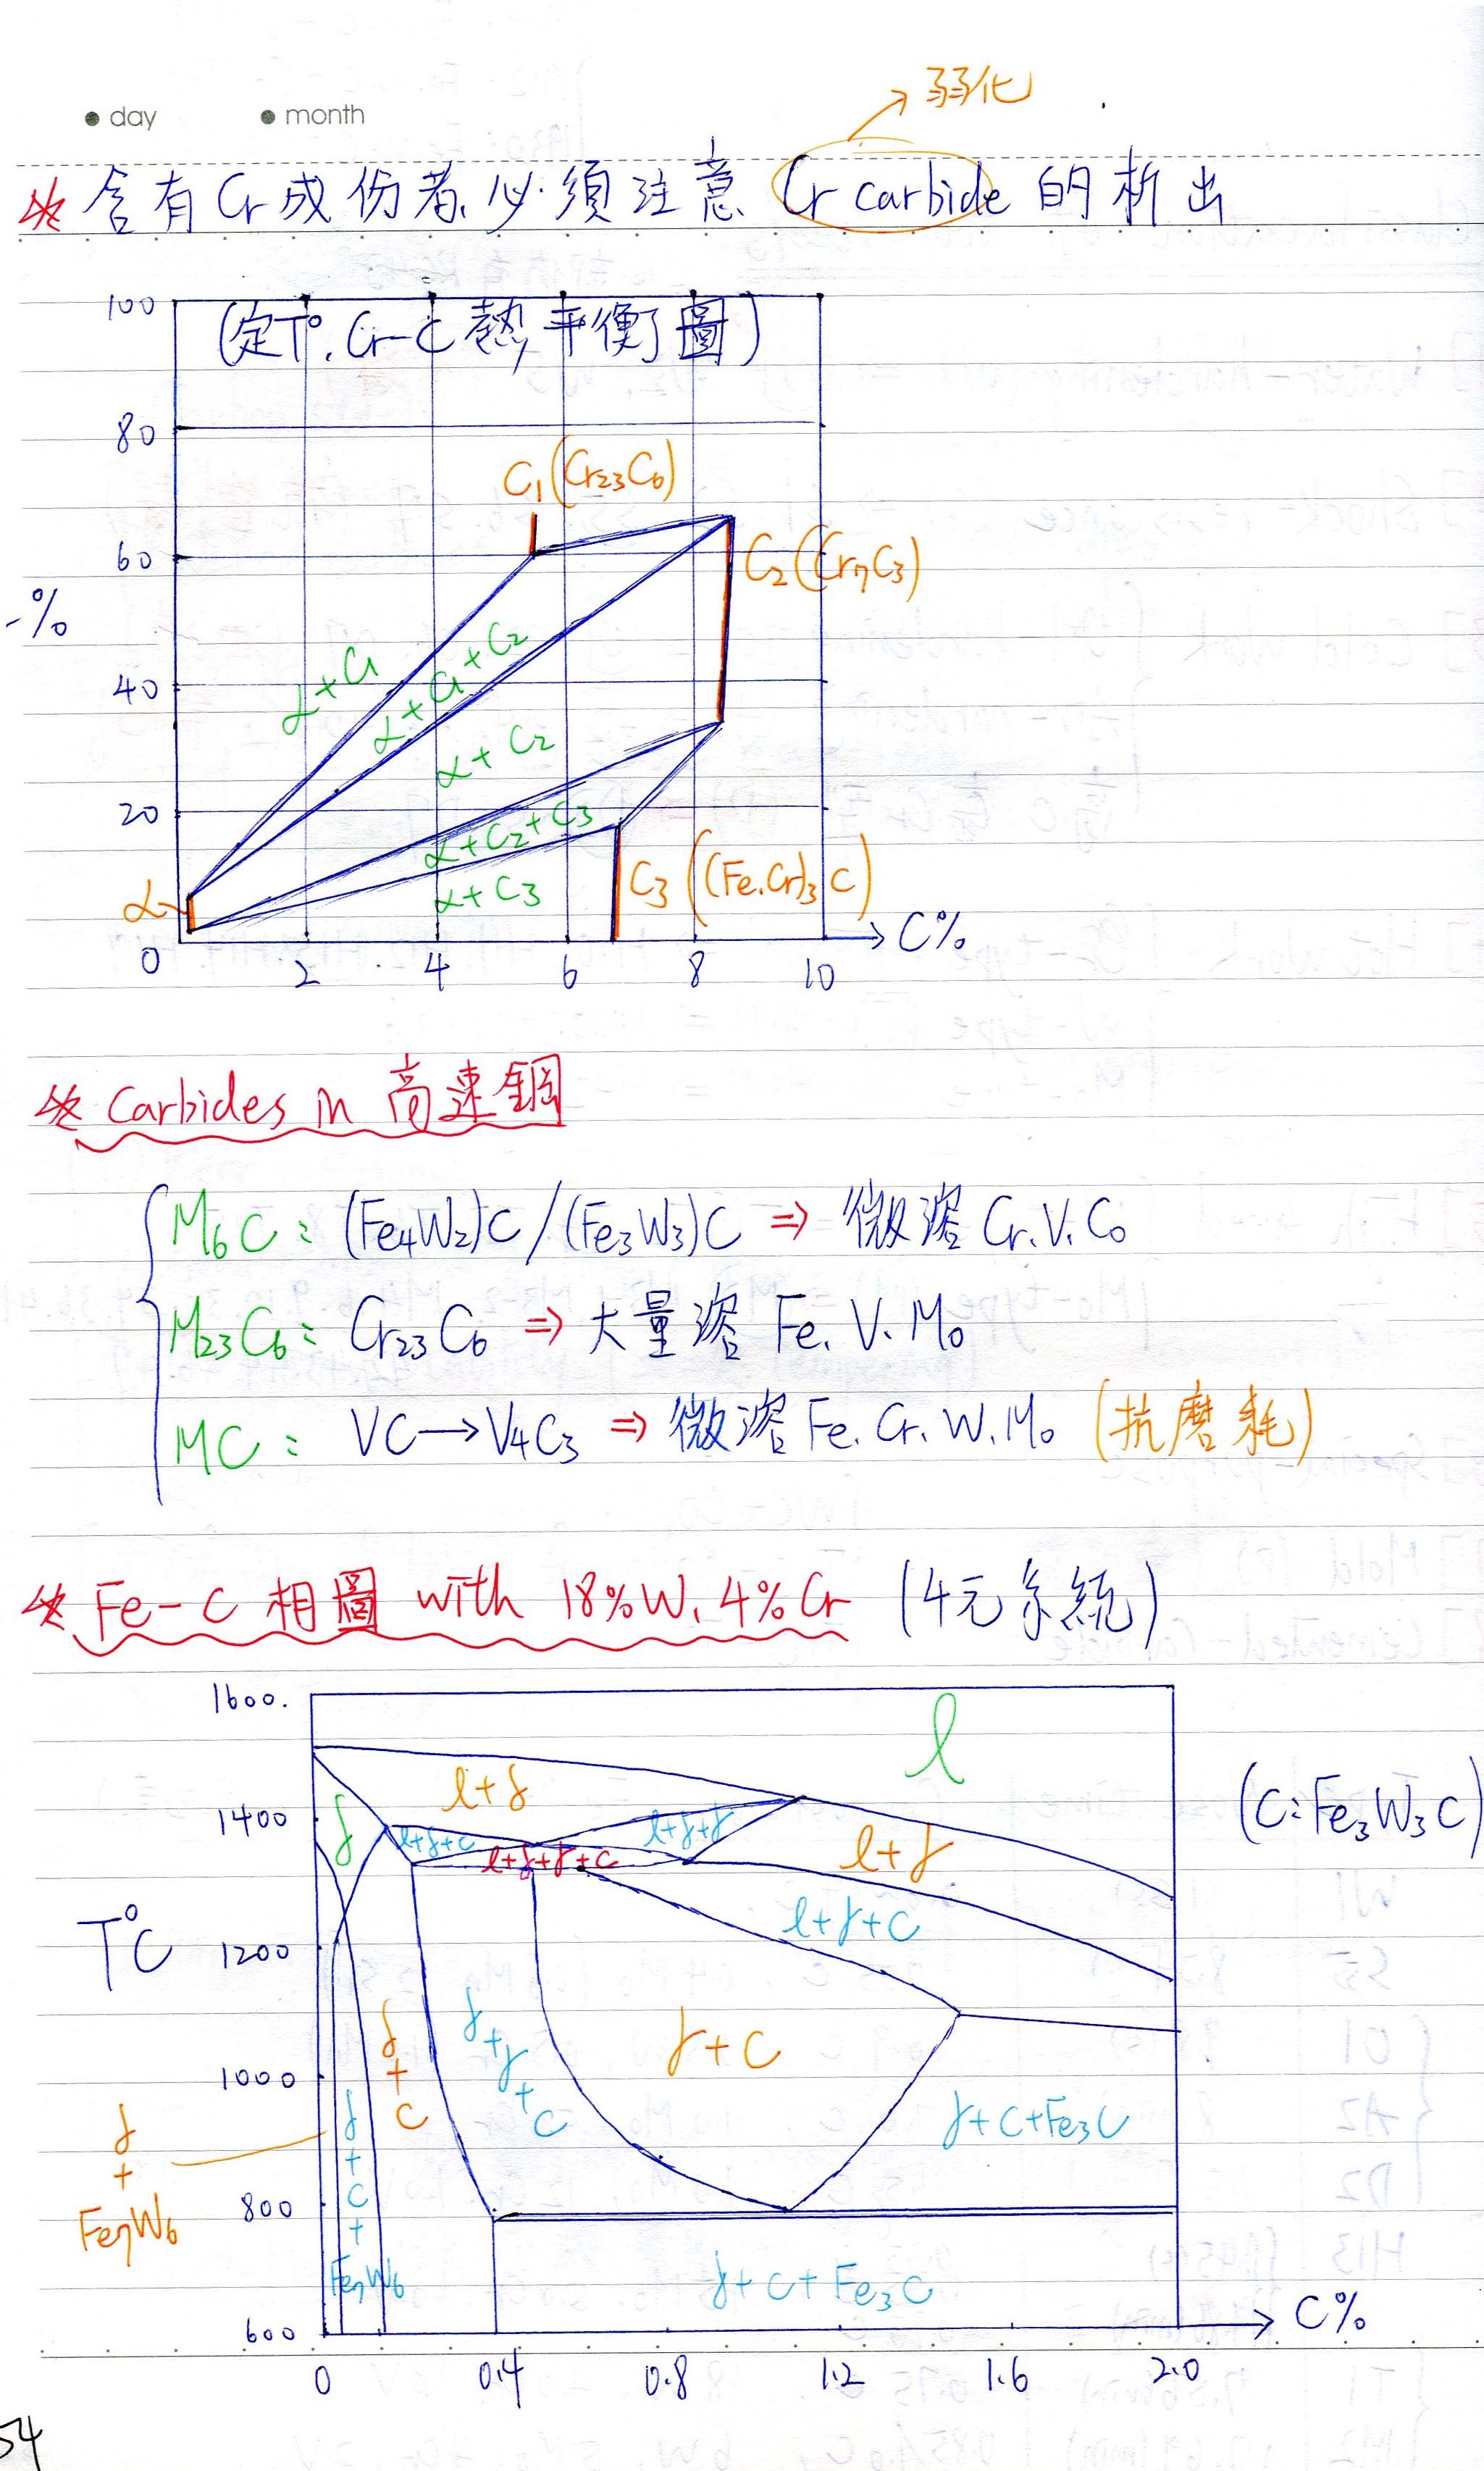 day month
弱化
含有Cr成份者,必須注意 Cr carbide 的析出
(定T°, Cr-C 熱平衡圖)
100
80
60
40
20
0
-%
C₁(Cr₂₃C₆)
C₂(Cr₇C₃)
α+C₁
α+C₁+C₂
α+C₂
α+C₂+C₃
α+C₃
C₃((Fe.Cr)₃C)
α
2 4 6 8 10
C%
Carbides in 高速鋼
M₆C: (Fe₄W₂)C/(Fe₃W₃)C ⇒ 微溶 Cr.V.Co
M₂₃C₆: Cr₂₃C₆ ⇒ 大量溶 Fe.V.Mo
MC: VC→V₄C₃ ⇒ 微溶 Fe.Cr.W.Mo (抗磨耗)
Fe-C 相圖 with 18%W, 4%Cr (4元系統)
1600
1400
1200
1000
800
600
T°C
l
l+δ
δ
l+δ+C
l+δ+γ
l+δ+γ+C
l+γ
l+γ+C
(C:Fe₃W₃C)
δ+C
δ+γ+C
γ+C
γ+C+Fe₃C
δ+Fe₇W₆
δ+C+Fe₇W₆
δ+C+Fe₃C
0 0.4 0.8 1.2 1.6 2.0
C%
54